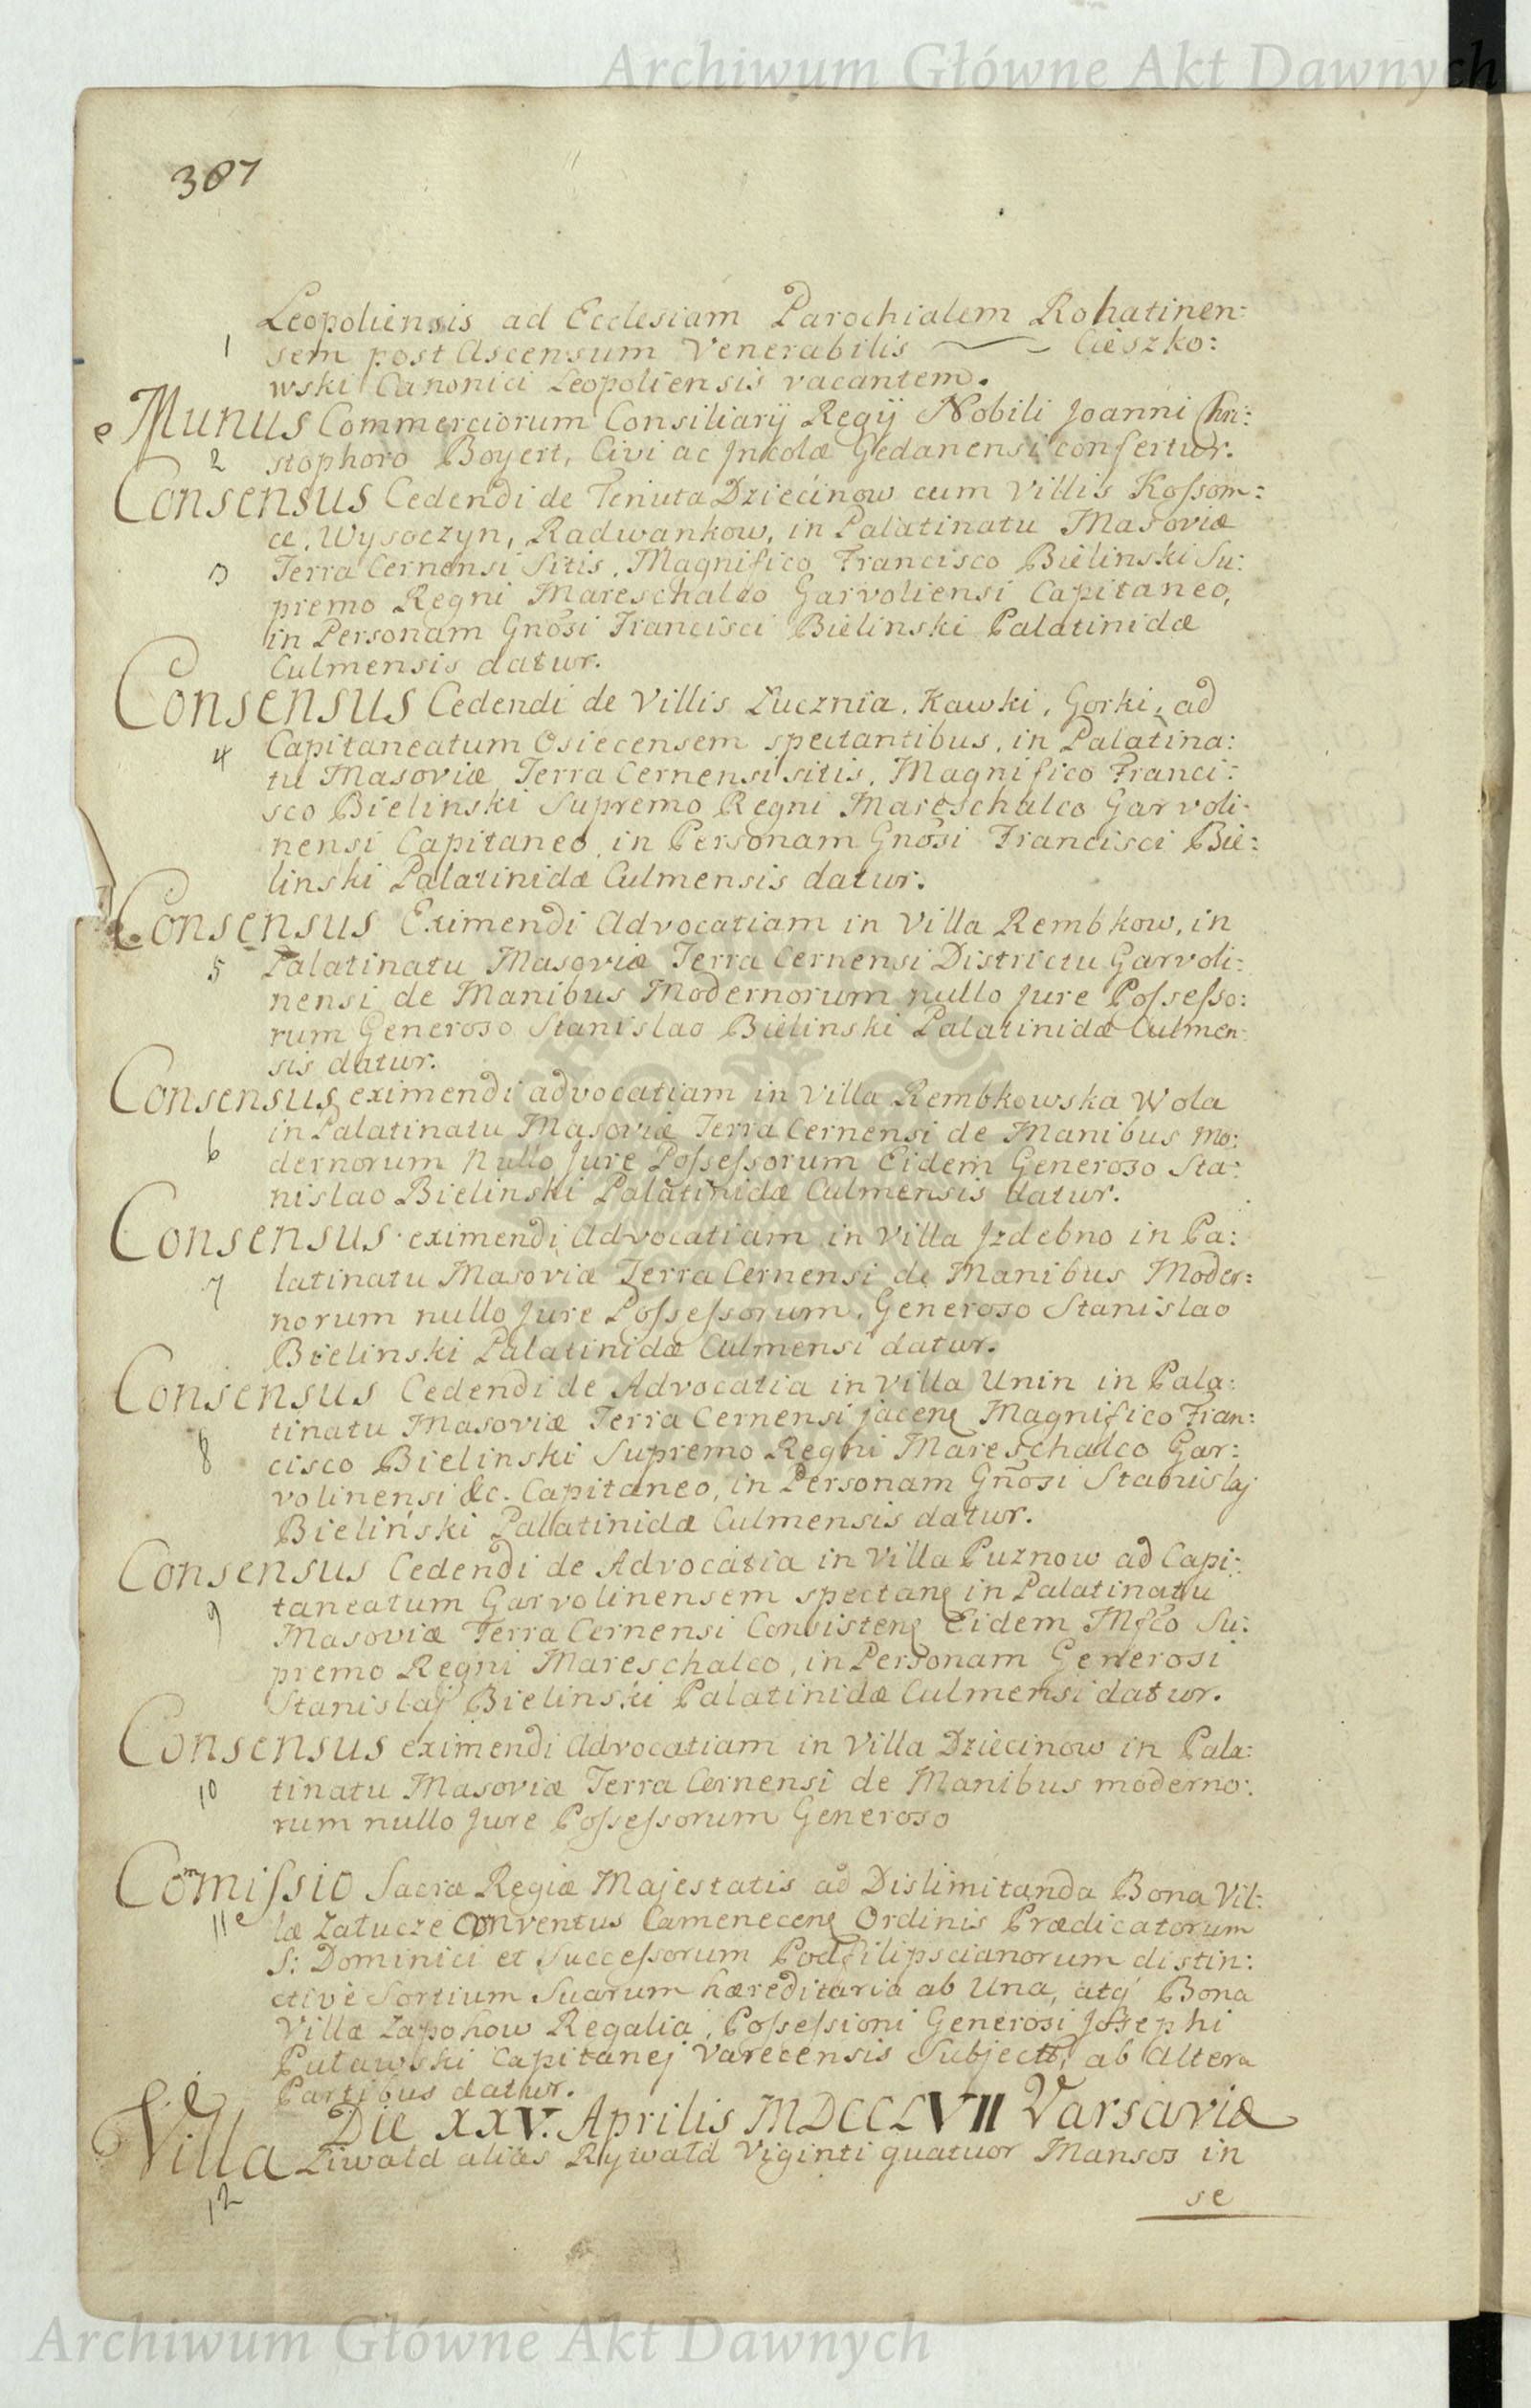 Archiwum Główne Akt Dawnych
387
Leopoliensis ad Ecclesiam Parochialem Rohatinen:
1 sem post Ascensum Venerabilis Cieszko:
wski Canonici Leopoliensis vacantem.
Munus Commerciorum Consiliarij Regij Nobili Joanni Chri:
2 stophoro Boyert, Civi ac Jncolæ Gedanensi confertur.
Consensus Cedendi de Tenuta Dziećinow cum Villis Koſsom:
ce, Wysoczyn, Radwankow, in Palatinatu Masoviæ
3 Terra Cernensi Sitis, Magnifico Francisco Bielinski Su:
premo Regni Mareschalco Garvoliensi Capitaneo,
in Personam Gnosi Francisci Bielinski Palatinidæ
Culmensis datur.
Consensus Cedendi de Villis Lucznia, Kawki, Gorki, ad
4 Capitaneatum Osiecensem spectantibus, in Palatina:
tu Masoviæ Terra Cernensi sitis, Magnifico Franci:
sco Bielinski Supremo Regni Mareschalco Garvoli:
nensi Capitaneo, in Personam Gnosi Francisci Bie:
linski Palatinidæ Culmensis datur.
Consensus Eximendi Advocatiam in Villa Rembkow, in
5 Palatinatu Masoviæ Terra Cernensi Districtu Garvoli:
nensi de Manibus Modernorum nullo Jure Poſseſso:
rum Generoso Stanislao Bielinski Palatinidæ Culmen:
sis datur.
Consensus eximendi advocatiam in Villa Rembkowska Wola
in Palatinatu Masoviæ Terra Cernensi de Manibus Mo:
6 dernorum Nullo Jure Poſseſsorum Eidem Generoso Sta:
nislao Bielinski Palatinidæ Culmensis datur.
Consensus eximendi Advocatiam in Villa Jzdebno in Pa:
7 latinatu Masoviæ Terra Cernensi de Manibus Moder:
norum nullo Jure Poſseſsorum, Generoso Stanislao
Bielinski Palatinidæ Culmensi datur.
Consensus Cedendi de Advocatia in Villa Unin in Pala:
8 tinatu Masoviæ Terra Cernensi jacenę Magnifico Fran:
cisco Bielinski Supremo Regni Mareschalco Gar:
volinensi &c. Capitaneo, in Personam Gnosi Stanislaj
Bieliński Palatinidæ Culmensis datur.
Consensus Cedendi de Advocatia in Villa Puznow ad Capi:
9 taneatum Garvolinensem spectanę in Palatinatu
Masoviæ Terra Cernensi Consistenę Eidem Mfco Su:
premo Regni Mareschalco, in Personam Generosi
Stanislaj Bielinski Palatinidæ Culmensi datur.
Consensus eximendi Advocatiam in Villa Dziecinow in Pala:
10 tinatu Masoviæ Terra Cernensi de Manibus moderno:
rum nullo Jure Poſseſsorum Generoso
Comiſsio Sacræ Regiæ Majestatis ad Dislimitanda Bona Vil:
11 læ Załucze Conventus Camenecenę Ordinis Prædicatorum
S: Dominici et Succeſsorum Podfilipscianorum distin:
ctivè Sortium Suarum hæreditaria ab Una, atq Bona
Villæ Zapohow Regalia, Poſseſsioni Generosi Josephi
Puławski Capitanej Varecensis Subjecta, ab Altera
Partibus datur.
Die XXV. Aprilis MDCCLVII Varsaviæ
Villa Liwald alias Rywałd Viginti quatuor Mansos in
12
se
Archiwum Główne Akt Dawnych